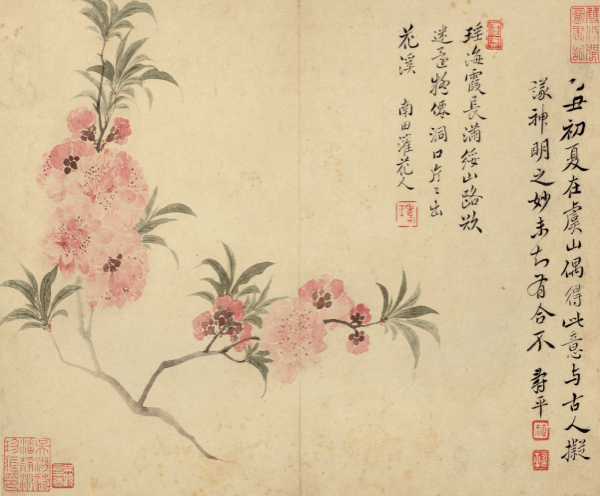 乙丑初夏在虞山偶得此意与古人擬
議神明之妙未知有合不 壽平
瑤海霞長滿綏山路欲
迷還疑僊洞口片〻出
花溪 南田灌花人